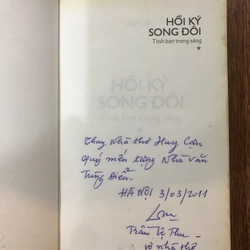 HỒI KÝ
SONG ĐÔI
Tình bạn trong sáng
*
HỒI KÝ
SONG ĐÔI
Tình bạn trong sáng
Thay Nhà thơ Huy Cận
quý mến tặng Nhà văn
Trung
HÀ NỘI 3/03/2011
Trần Lệ Thu -
vợ nhà thơ